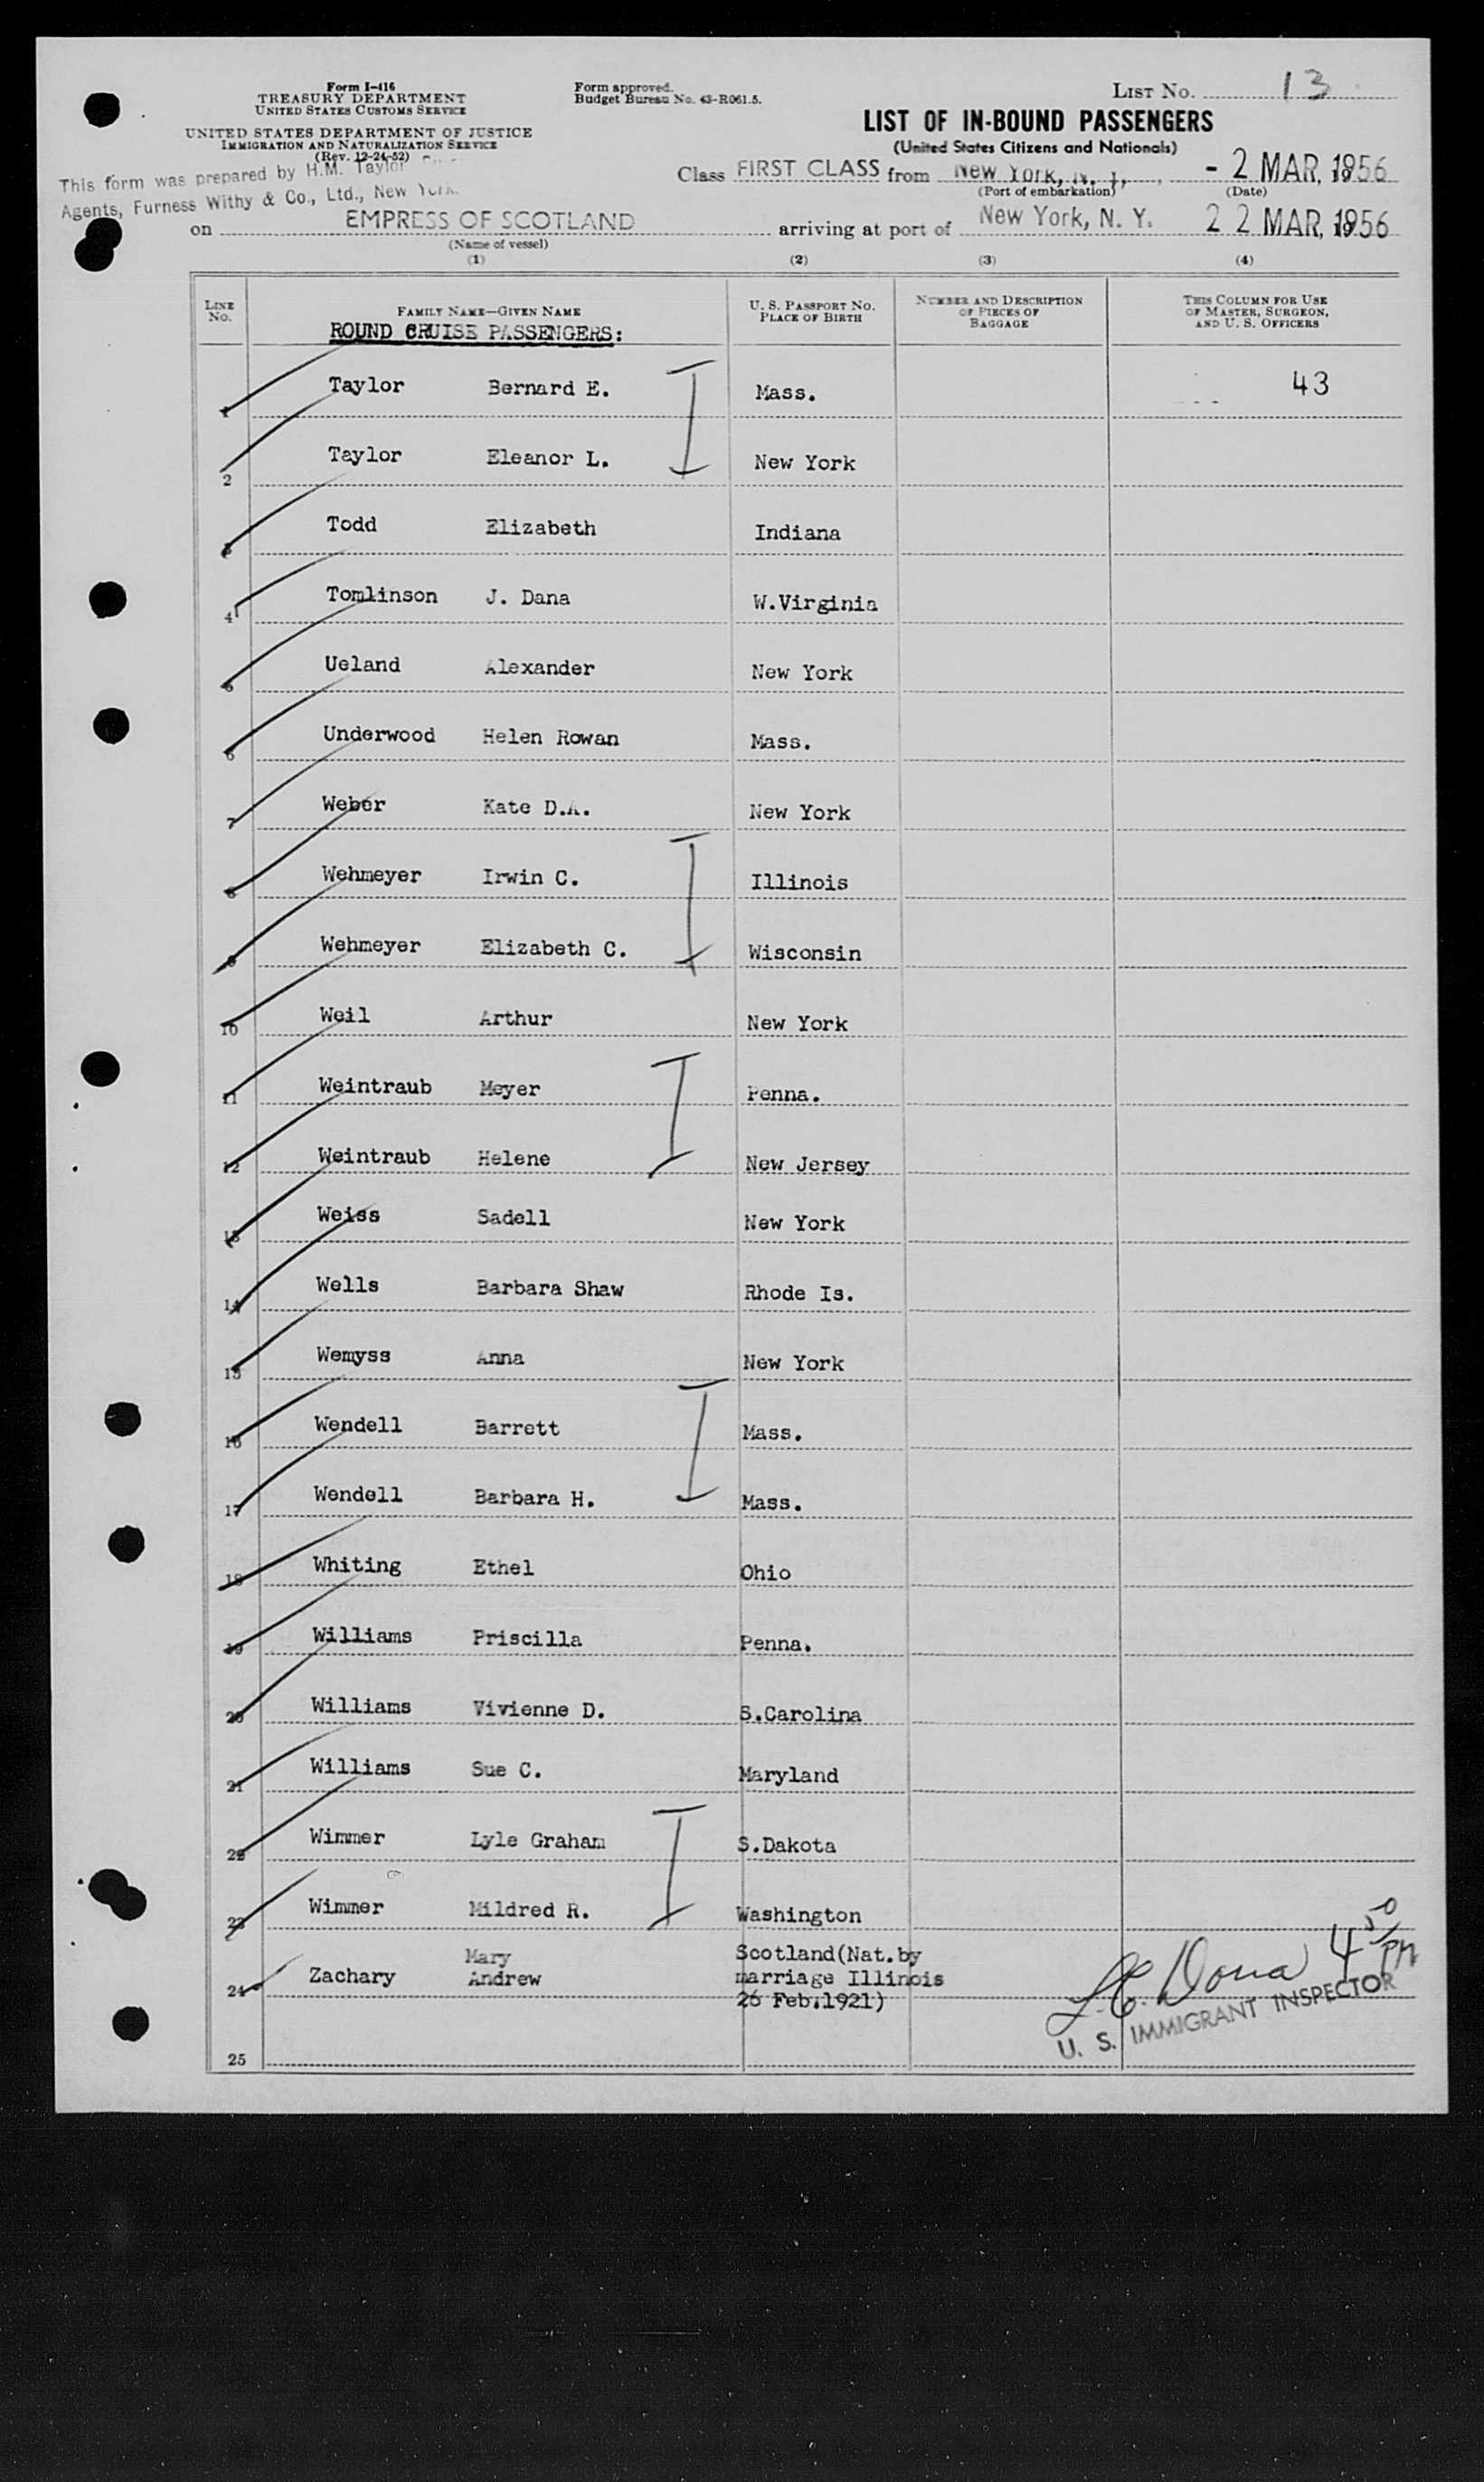 Form I-416
TREASURY DEPARTMENT
UNITED STATES CUSTOMS SERVICE
UNITED STATES DEPARTMENT OF JUSTICE
IMMIGRATION AND NATURALIZATION SERVICE
(Rev. 12-24-52)
This form was prepared by H.M. Taylor
Agents, Furness Withy & Co., Ltd., New York.
Form approved.
Budget Bureau No. 43-R061.5.
LIST NO. 13
LIST OF IN-BOUND PASSENGERS
(United States Citizens and Nationals)
Class FIRST CLASS from New York, N. Y., - 2 MAR, 1956
(Port of embarkation) (Date)
on EMPRESS OF SCOTLAND arriving at port of New York, N. Y. 2 2 MAR, 1956
(Name of vessel)
(1) (2) (3) (4)
LINE NO. FAMILY NAME—GIVEN NAME U. S. PASSPORT NO. PLACE OF BIRTH NUMBER AND DESCRIPTION OF PIECES OF BAGGAGE THIS COLUMN FOR USE OF MASTER, SURGEON, AND U. S. OFFICERS
ROUND CRUISE PASSENGERS:
1 Taylor Bernard E. Mass. 43
2 Taylor Eleanor L. New York
3 Todd Elizabeth Indiana
4 Tomlinson J. Dana W.Virginia
5 Ueland Alexander New York
6 Underwood Helen Rowan Mass.
7 Weber Kate D.A. New York
8 Wehmeyer Irwin C. Illinois
9 Wehmeyer Elizabeth C. Wisconsin
10 Weil Arthur New York
11 Weintraub Meyer Penna.
12 Weintraub Helene New Jersey
13 Weiss Sadell New York
14 Wells Barbara Shaw Rhode Is.
15 Wemyss Anna New York
16 Wendell Barrett Mass.
17 Wendell Barbara H. Mass.
18 Whiting Ethel Ohio
19 Williams Priscilla Penna.
20 Williams Vivienne D. S.Carolina
21 Williams Sue C. Maryland
22 Wimmer Lyle Graham S.Dakota
23 Wimmer Mildred R. Washington
24 Zachary Mary Andrew Scotland(Nat.by
marriage Illinois
26 Feb.1921)
4 50 PM
U. S. IMMIGRANT INSPECTOR
25